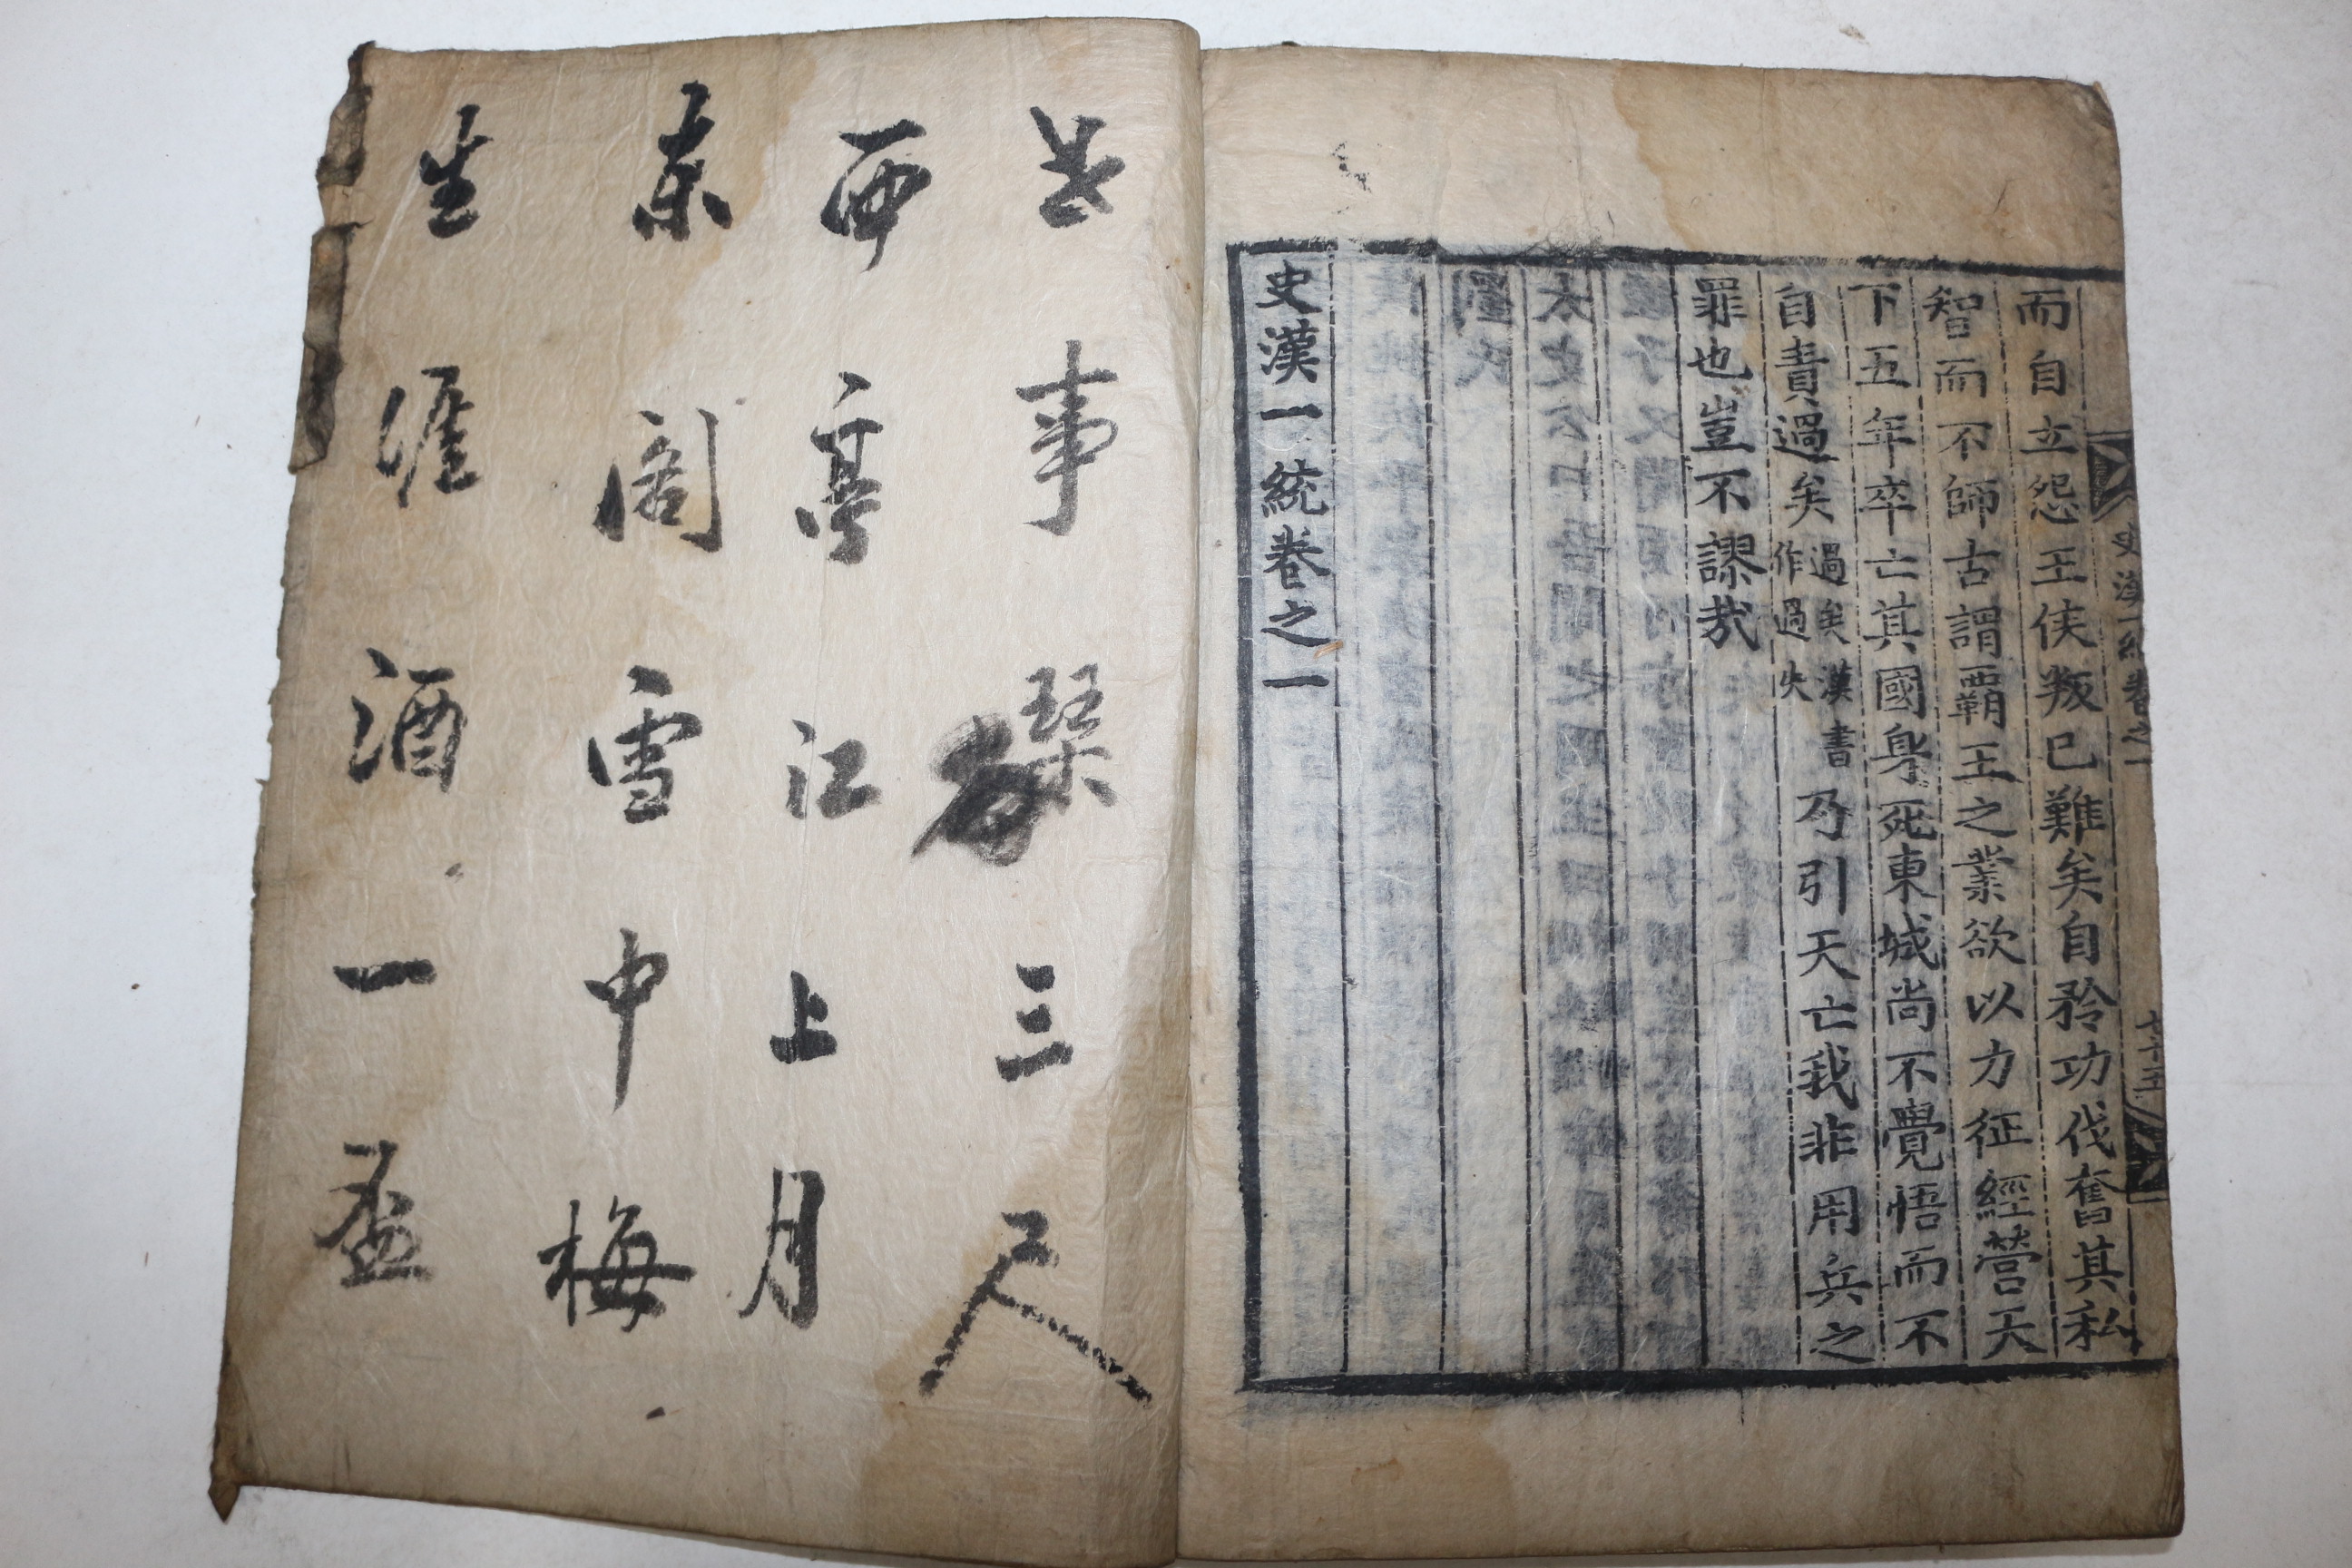 史漢一統卷之一
七十五
而自立怨王侯叛已難矣自矜功伐奮其私
智而不師古謂霸王之業欲以力征經營天
下五年卒亡其國身死東城尚不覺悟而不
自責過矣過矣漢書作過失乃引天亡我非用兵之
罪也豈不謬哉
史漢一統卷之一
事琴三尺
西亭江上月
東閣雪中梅
生涯酒一盃